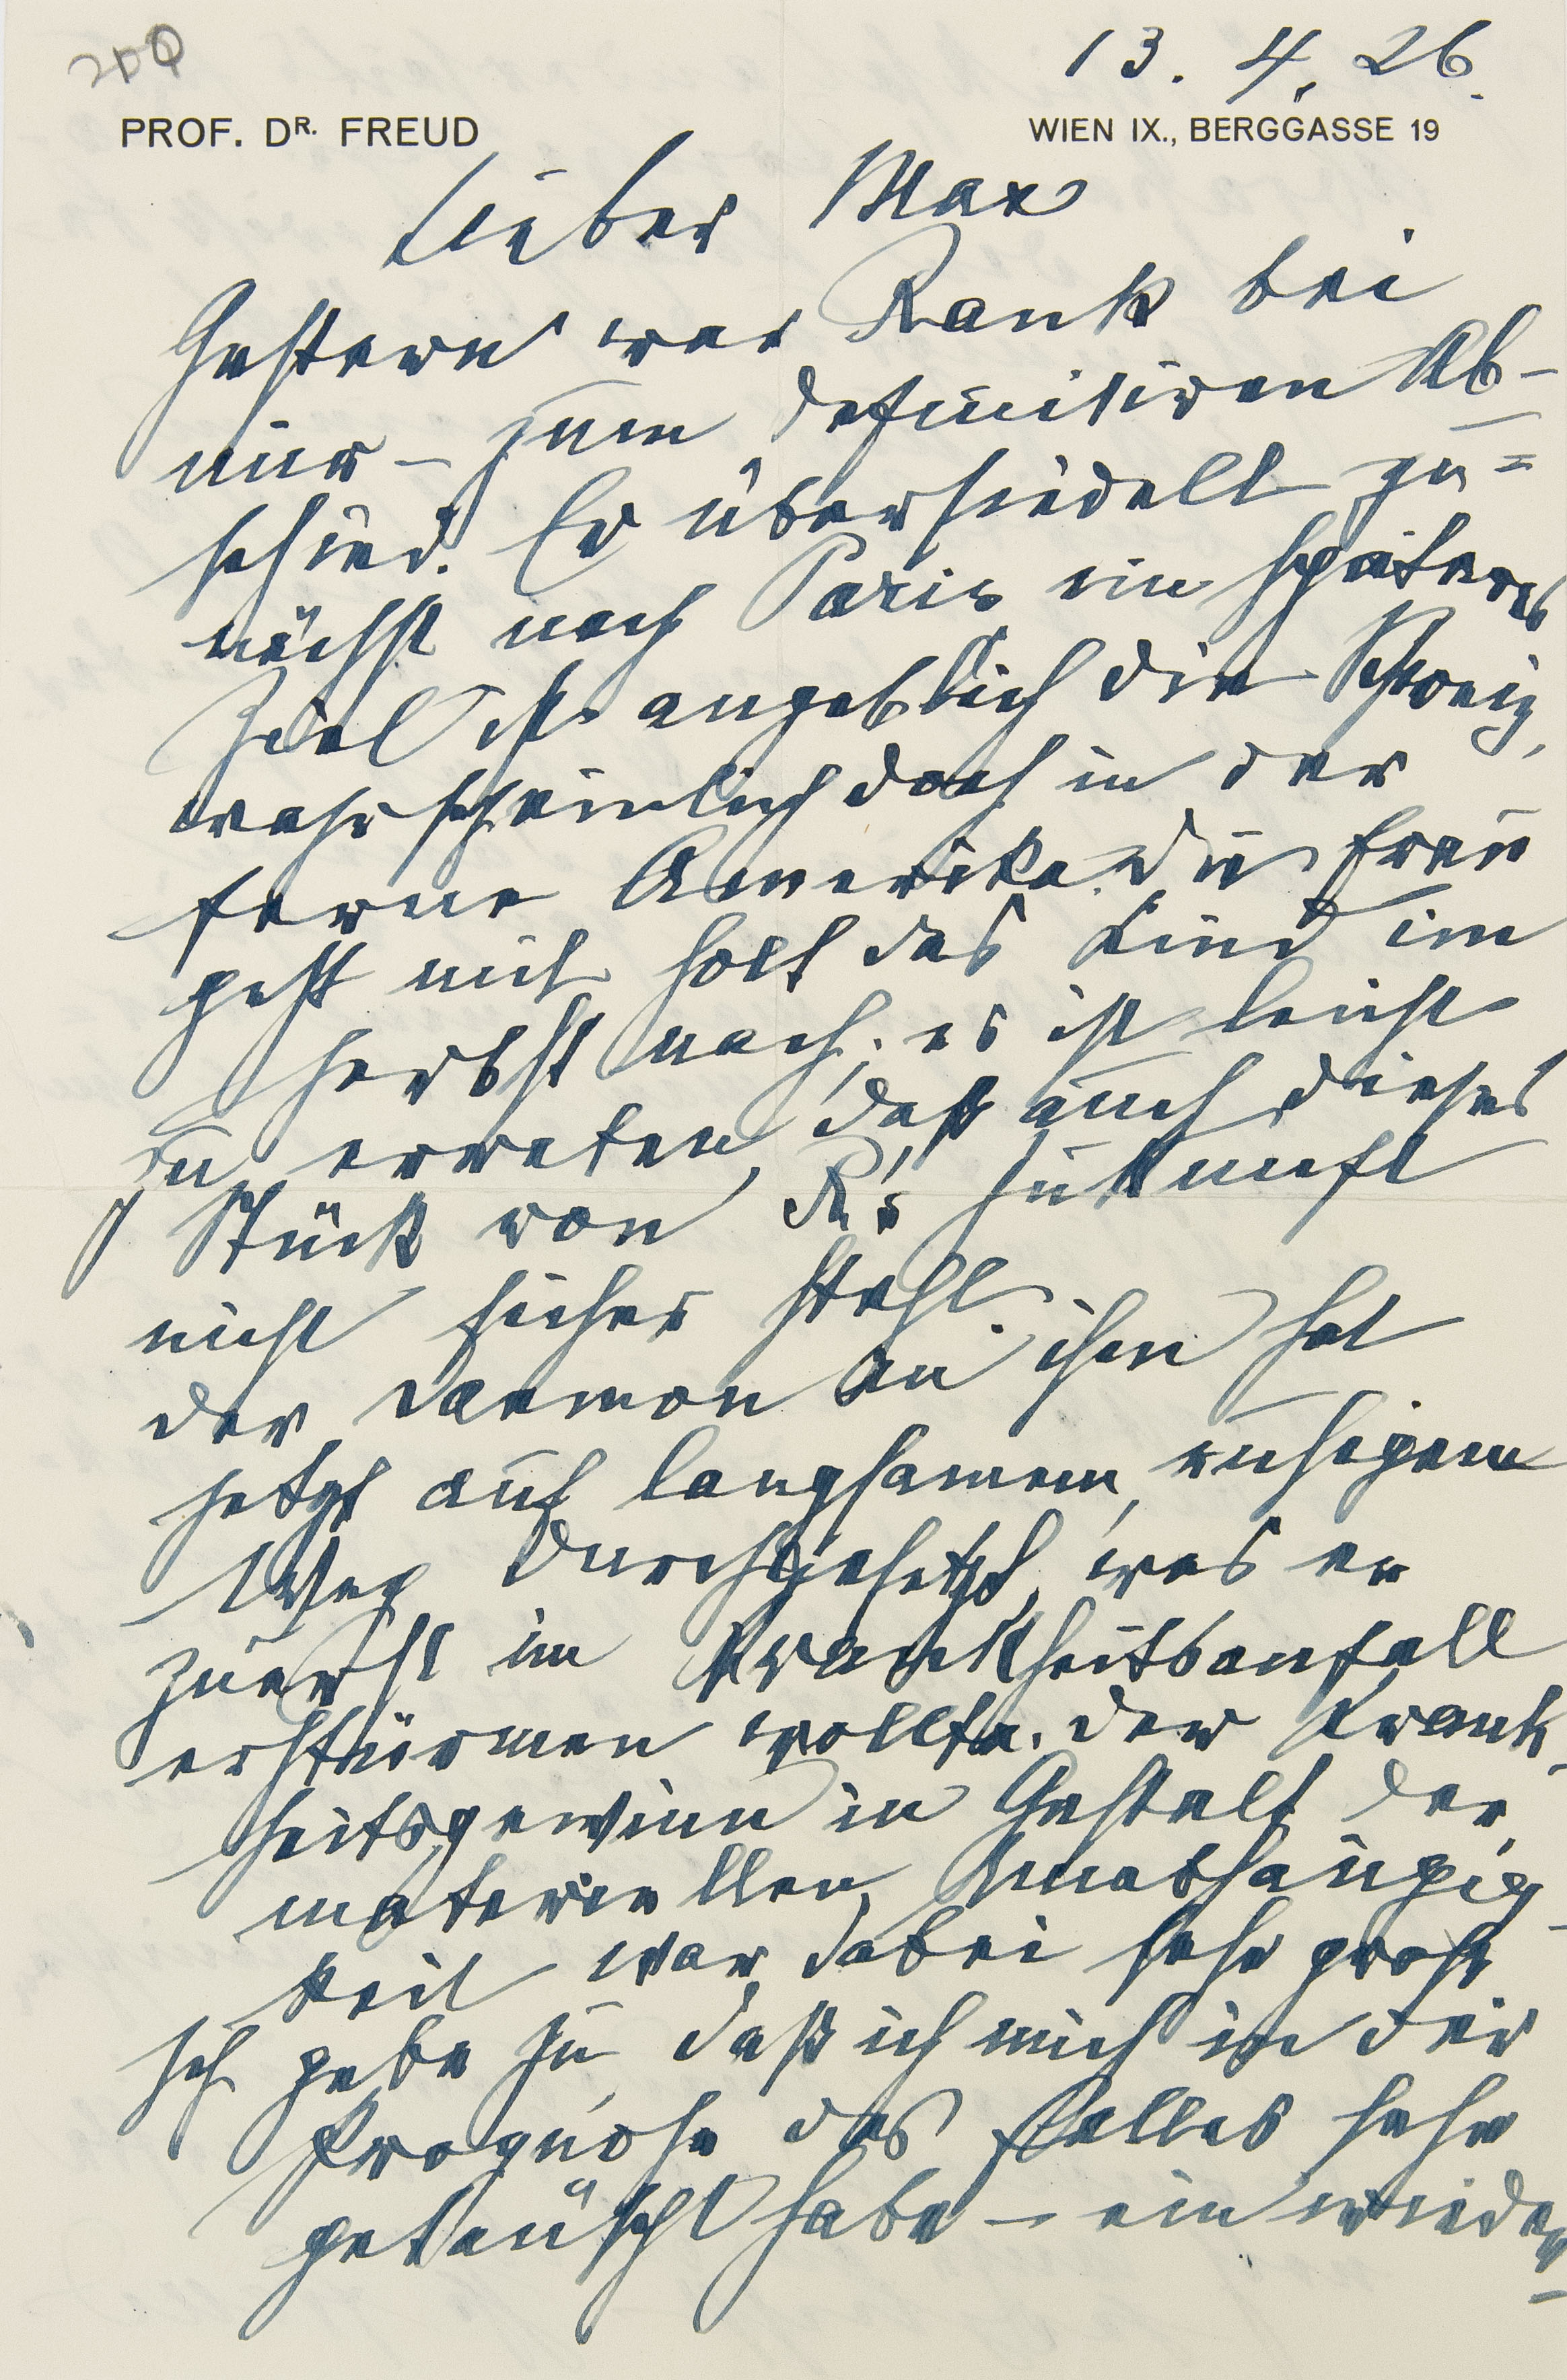 13. 4. 26.
PROF. DR. FREUD
WIEN IX., BERGGASSE 19
Lieber Max
Gestern war Rank bei
mir – zum definitiven Ab-
schied. Er übersiedelt zu=
nächst nach Paris, ein späteres
Ziel ist angeblich die Schweiz,
wahrscheinlich doch in der
Ferne Amerika. Die Frau
geht mit holt das Kind im
Herbst nach; es ist leicht
zu erraten, daß auch dieses
Stück von R's Zukunft
nicht sicher steht.
Der Daemon in ihm hat
jetzt auf langsamem, ruhigem
Weg durchgesetzt, was er
zuerst im Krankheitsanfall
erstürmen wollte. Der Krank-
heitsgewinn in Gestalt der
materiellen Unabhängig-
keit war dabei sehr groß.
Ich gebe zu, daß ich mich in der
Prognose des Falles sehr
getäuscht habe – ein wieder-